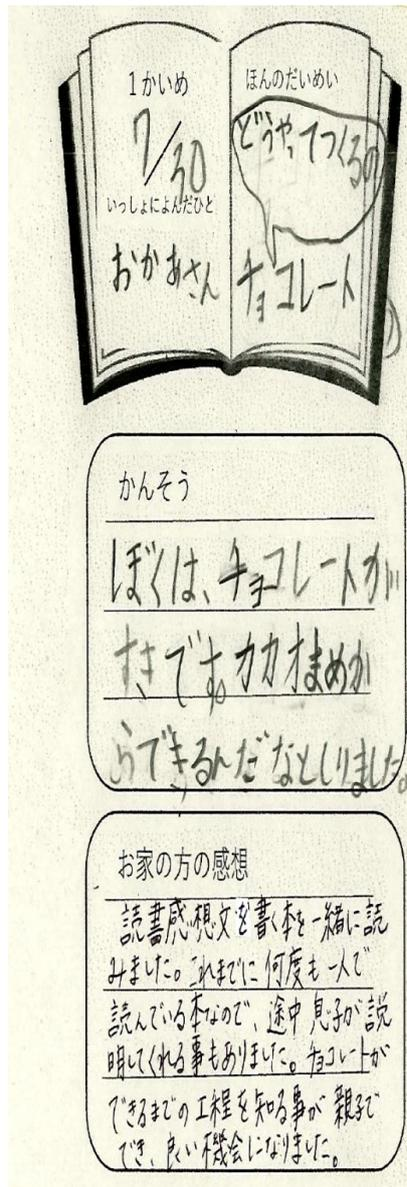 1かいめ
7/30
いっしょによんだひと
おかあさん
ほんのだいめい
どうやってつくるの
チョコレート
かんそう
ぼくは、チョコレートが
すきです。カカオまめか
らできるんだなとしりました。
お家の方の感想
読書感想文を書く本を一緒に読
みました。これまでに何度も一人で
読んでいる本なので、途中息子が説
明してくれる事もありました。チョコレートが
できるまでの工程を知る事が親子で
でき、良い機会になりました。